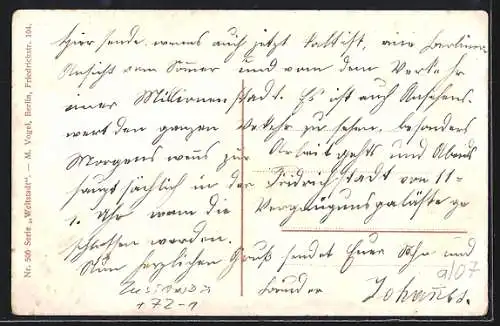 Hier sende, wenns auch jetzt kalt ist, eine Berliner
Ansicht vom Sommer und von dem Verkehr
einer Millionenstadt. Es ist auch Ansehens-
wert den ganzen Verkehr zu sehen, besonders
Morgens wenns zur Arbeit geht und Abends
hauptsächlich in der Friedrichstadt von 11-
1. Uhr wenn die Vergnügungspaläste ge
schlossen werden.
Nun herzlichen Gruß sendet Euer Sohn und
Bruder Johannes.
9/07
172-1
Nr. 500 Serie „Weltstadt“. — M. Vogel, Berlin, Friedrichstr. 104.